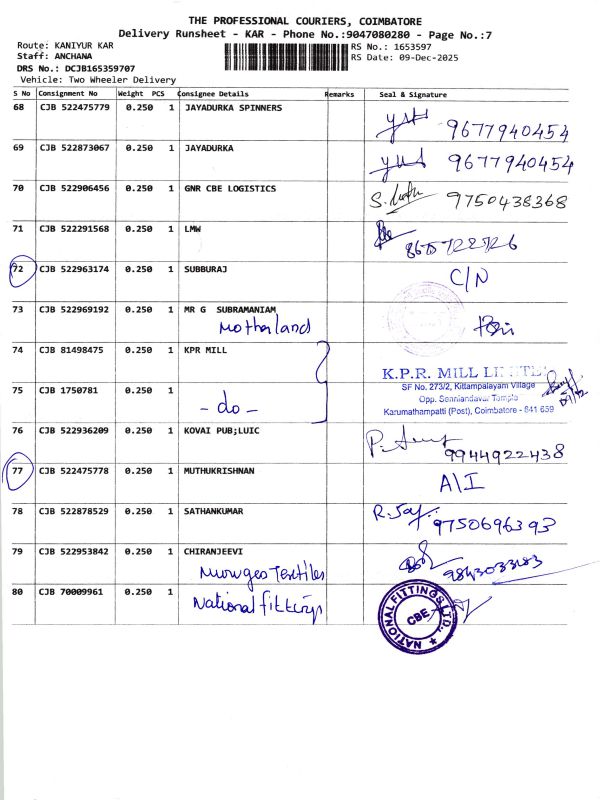 THE PROFESSIONAL COURIERS, COIMBATORE
Delivery Runsheet - KAR - Phone No.:9047080280 - Page No.:7
Route: KANIYUR KAR
RS No.: 1653597
Staff: ANCHANA
RS Date: 09-Dec-2025
DRS No.: DCJB165359707
Vehicle: Two Wheeler Delivery
S No Consignment No Weight PCS Consignee Details Remarks Seal & Signature
68 CJB 522475779 0.250 1 JAYADURKA SPINNERS 9677940454
69 CJB 522873067 0.250 1 JAYADURKA 9677940454
70 CJB 522906456 0.250 1 GNR CBE LOGISTICS 9750438368
71 CJB 522291568 0.250 1 LMW
72 CJB 522963174 0.250 1 SUBBURAJ C/N
73 CJB 522969192 0.250 1 MR G SUBRAMANIAM
Motherland
74 CJB 81498475 0.250 1 KPR MILL
K.P.R. MILL LIMITED
SF No. 273/2, Kittampalayam Village
75 CJB 1750781 0.250 1
- do -
Opp. Senniandavar Temple
Karumathampatti (Post), Coimbatore - 641 659
76 CJB 522936209 0.250 1 KOVAI PUB;LUIC 9944922438
77 CJB 522475778 0.250 1 MUTHUKRISHNAN A\I
78 CJB 522878529 0.250 1 SATHANKUMAR 9750696393
79 CJB 522953842 0.250 1 CHIRANJEEVI
80 CJB 70009961 0.250 1 National fittings
NATIONAL FITTINGS LTD.
CBE